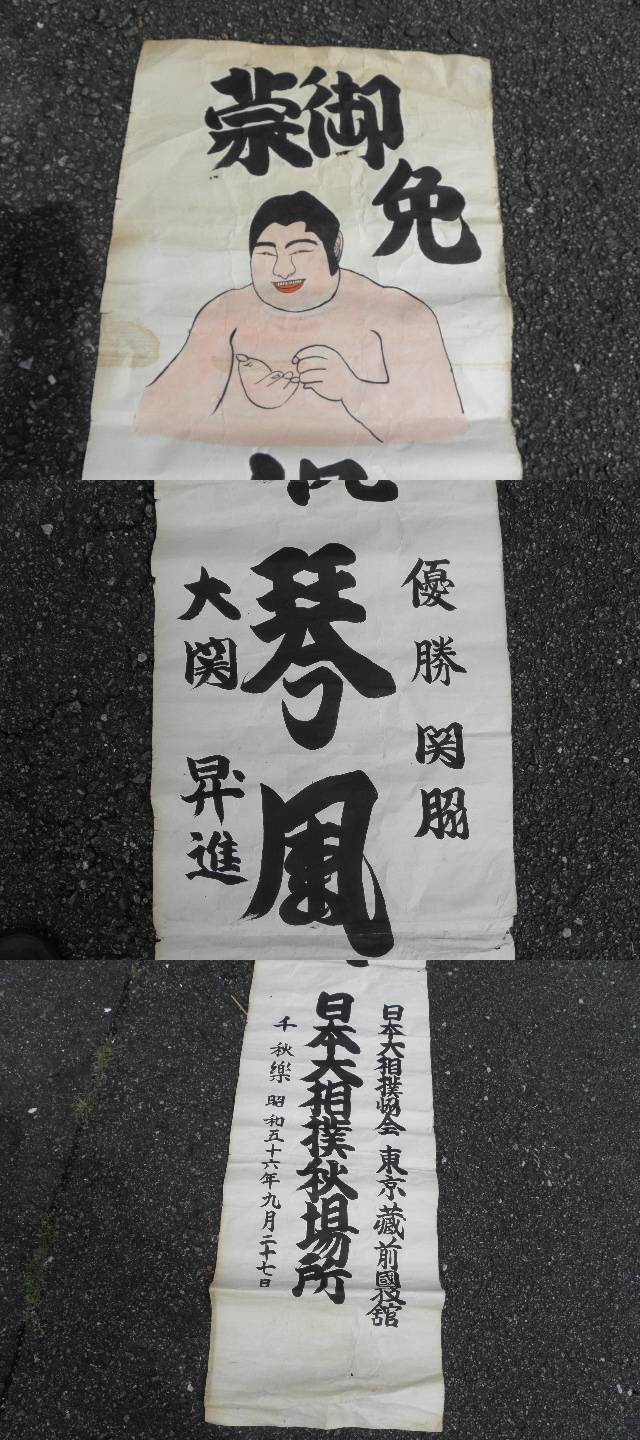 蒙御免
優勝 関脇
琴風
大関 昇進
日本大相撲協会 東京蔵前國技舘
日本大相撲秋場所
千秋樂 昭和五十六年九月二十七日